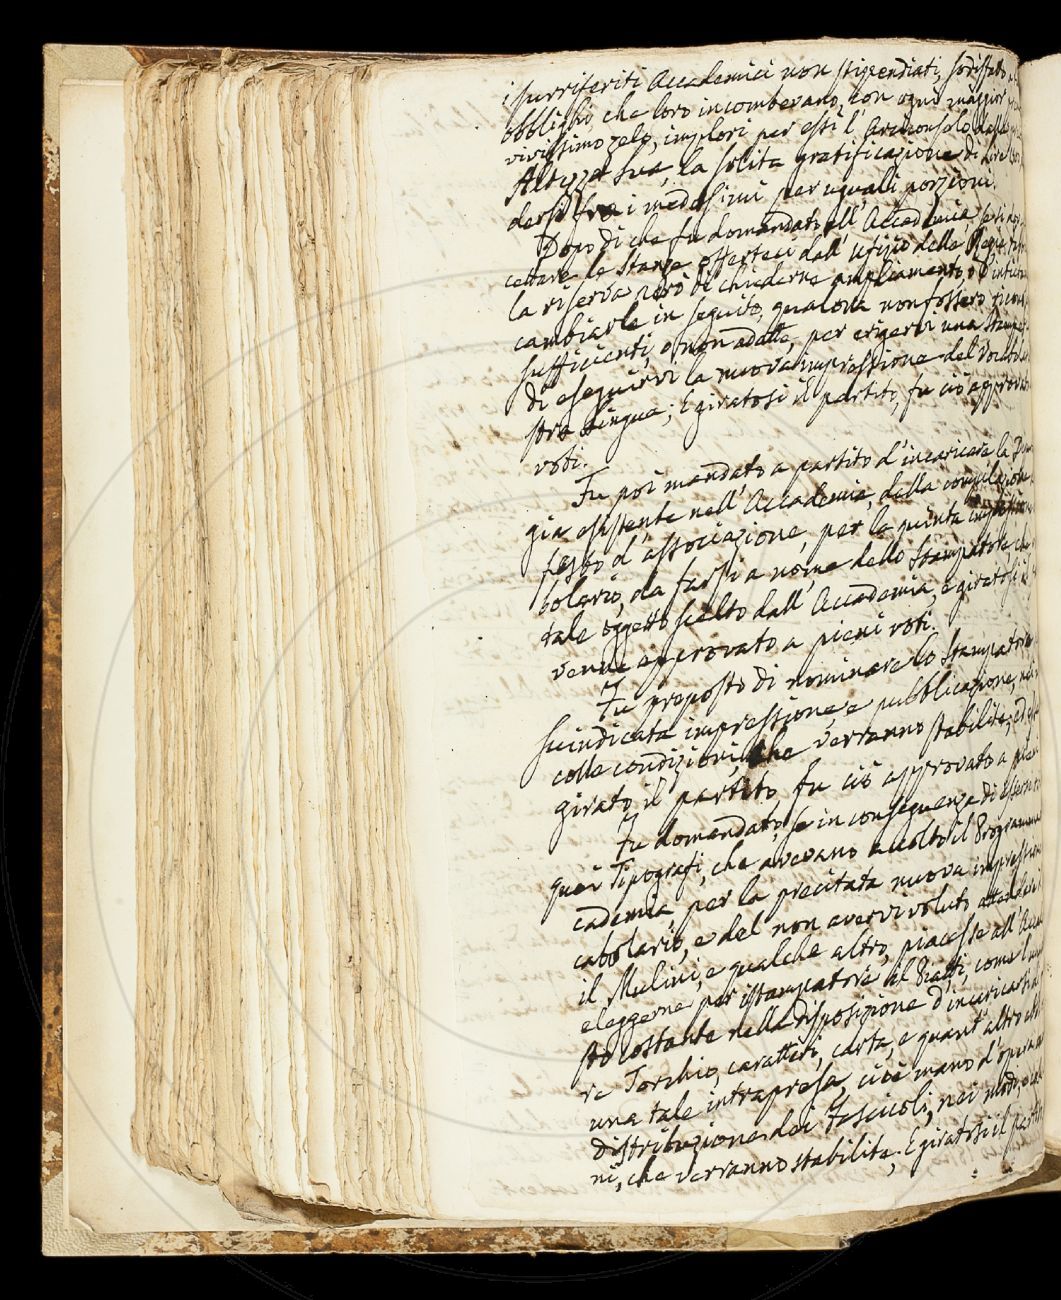 i surriferiti Accademici non stipendiati, sodisfatto
obblighi, che loro incombevano, con ogni maggior
vivissimo zelo, implori per essi l'Arciconsolo dall'
Altezza Sua, la solita gratificazione di
darsi fra i medesimi per uguali porzioni.
Dopo di che fu domandato all'Accademia se
cettare le Stanze offerteci dall'Ufizio delle Regie
la riserva però di chiederne ampliamento, o d'inti
cambiarle in seguito, qualora non fossero
sufficienti, o non adatte, per erigervi una Stamp
di eseguirvi la nuova impressione del Vocabol
stra Lingua; E giratosi il partito, fu ciò approvat
voti.
Fu poi mandato a partito d'incaricare la
gia esistente nell'Accademia, della compilazione
festo d'associazione, per la quinta impression
bolario, da farsi a nome dello Stampatore, che
tale oggetto scelto dall'Accademia, e giratosi il
venne approvato a pieni voti.
Fu proposto di nominare lo Stampatore
suindicata impressione, e pubblicazione, nei
colle condizioni, che verranno stabilite; ed
girato il partito fu ciò approvato a pien
Fu domandato, se in conseguenza di essersi
quei Tipografi, che avevano accolto il Programma
cademia, per la precitata nuova impression
cabolario, e del non avervi voluto attendere
il Mulini, e qualche altro, piacesse all'Acca
eleggerne per istampatore il Piatti, come l'un
sto costante nella disposizione d'incaricarsi
re Torchio, caratteri, carta, e quant'altro
una tale intrapresa, cioè mano d'opera
distribuzione dei Fascicoli, nei modi, e
ni, che verranno stabilite; E giratosi il part